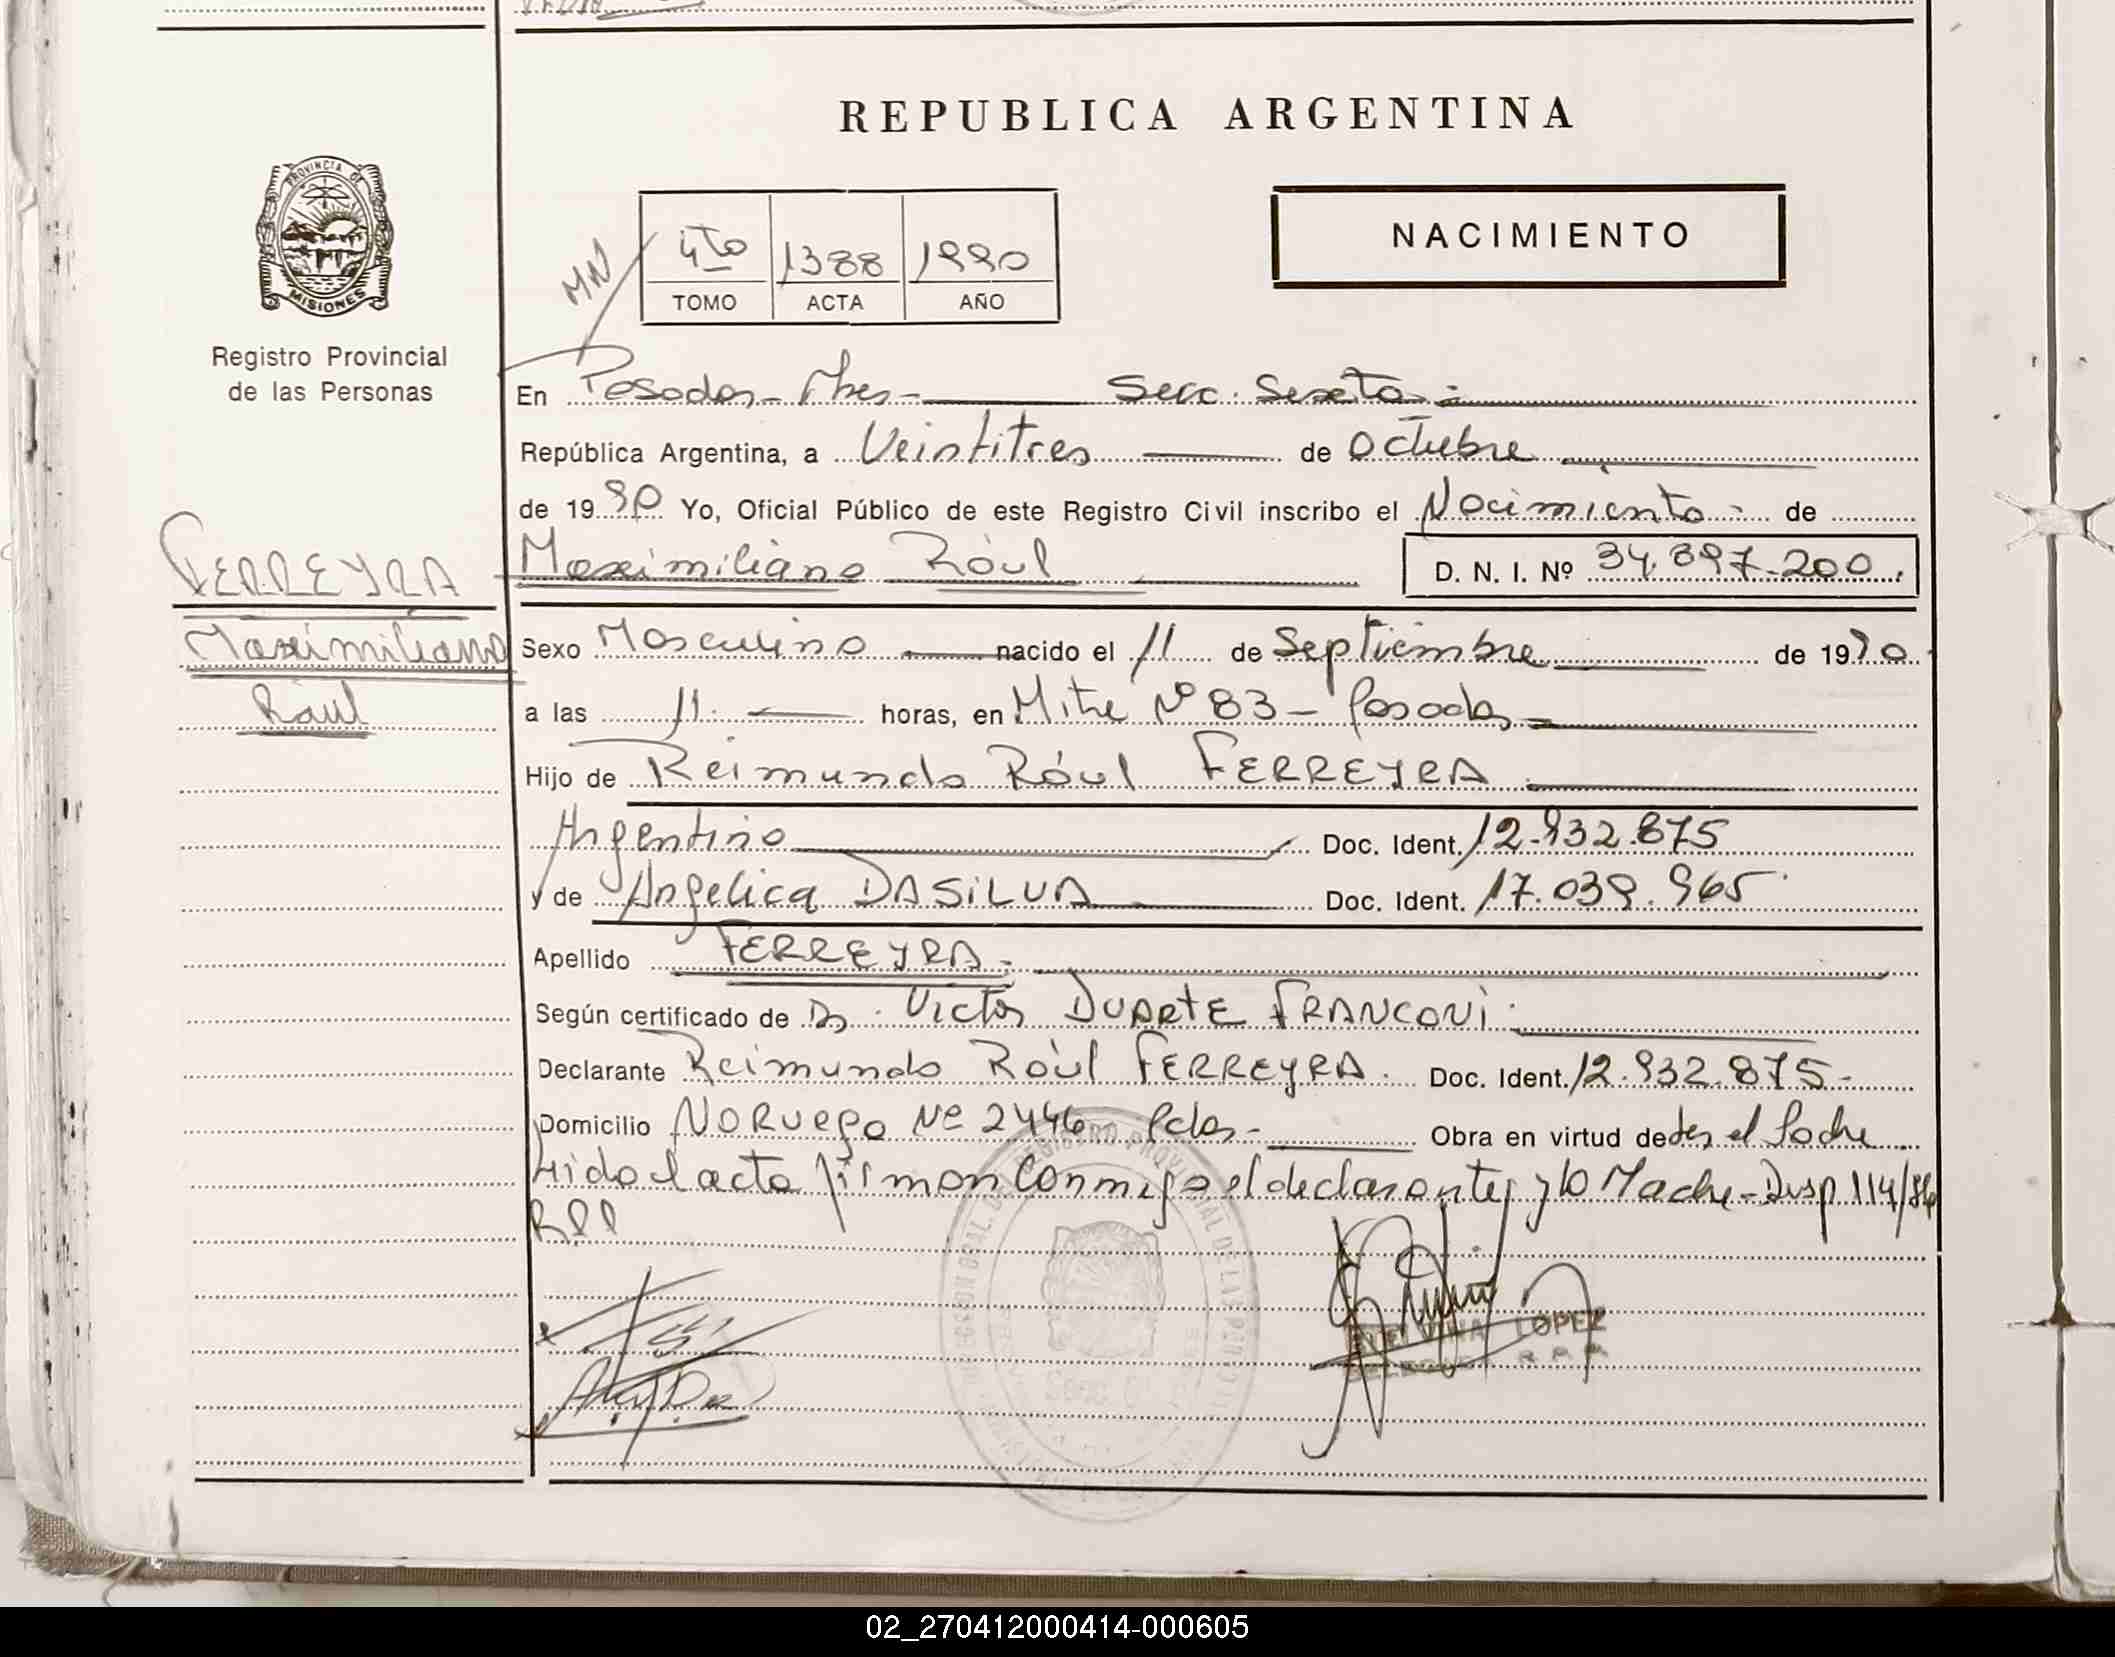 REPUBLICA ARGENTINA
PROVINCIA DE
MISIONES
Registro Provincial
de las Personas
MN
4to 1388 1990
TOMO ACTA AÑO
NACIMIENTO
En Posadas - Mnes - Secc. Sexta -
República Argentina, a Veintitres de Octubre
de 1990 Yo, Oficial Público de este Registro Civil inscribo el Nacimiento - de
Maximiliano Ràul D. N. I. Nº 34.897.200.
FERREYRA
Maximiliano
Raul
Sexo Masculino nacido el 11 de Septiembre de 1990.
a las 11. horas, en Mitre Nº 83 - Posadas -
Hijo de Reimundo Ràul FERREYRA
Argentino Doc. Ident. 12.932.875
y de Angelica DASILVA Doc. Ident. 17.039.965
Apellido FERREYRA -
Según certificado de Dr. Victor DUARTE FRANCONI
Declarante Reimundo Ràul FERREYRA. Doc. Ident. 12.932.875-
Domicilio NORUEGA Nº 2446 Pdas - Obra en virtud de ser el Padre
Lido el acta firman conmigo el declarante y la Madre - Disp 114/86
R.P.P
LOPEZ
02_270412000414-000605